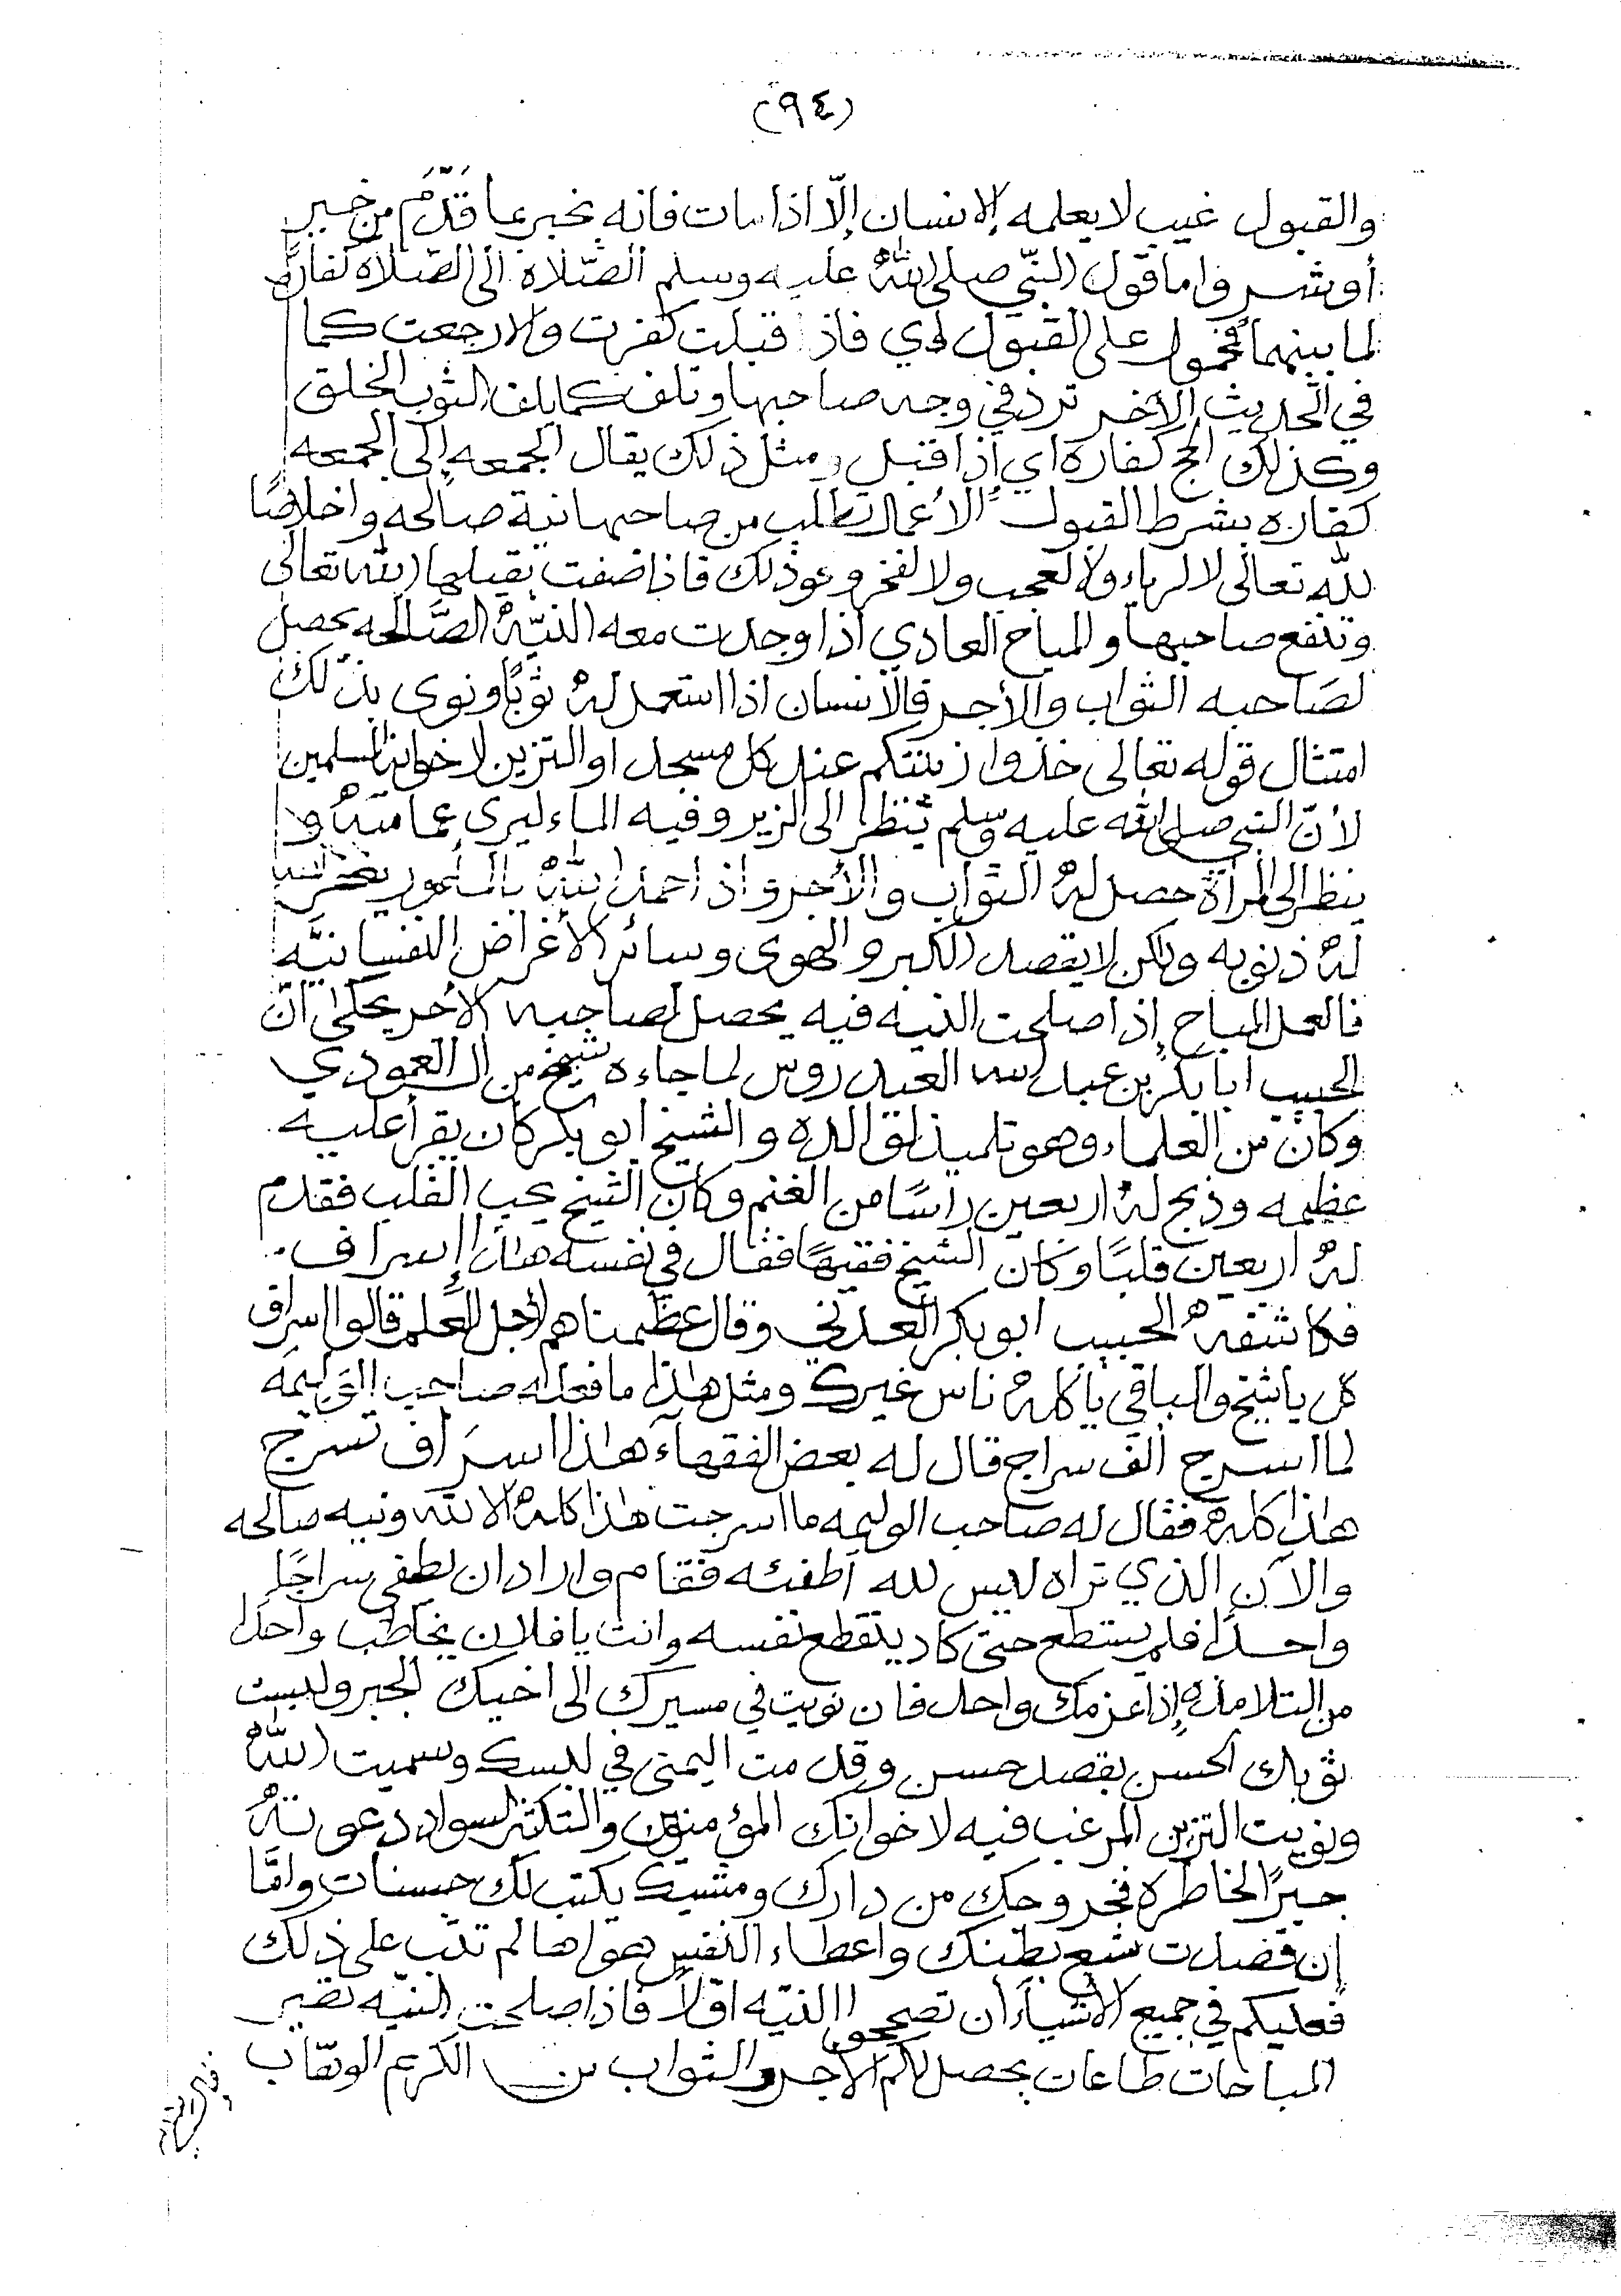 (٩٤)
والقبول غيب لا يعلمه الانسان إلّا اذا مات فانه يخبر بما قَدَّمَ من خير
أو شر واما قول النبّي صلى اللهُ عليه وسلم الصّلاة الى الصّلاة كفارةٌ
لما بينهما فمحمول على القبول اي فاذا قبلت كفرت والا رجعت كما
في الحديث الآخر ترد في وجه صاحبها وتلف كما يلف الثوب الخلق
وكذلك الحج كفارة اي إذا قبل ومثل ذلك يقال الجمعه إلى الجمعه
كفاره بشرط القبول الأعمال تطلب من صاحبها نية صالحه واخلاصًا
لله تعالى لا لرياء ولا لعجب ولا لفخر ونحو ذلك فاذا صفت يقبلها الله تعالى
وتنفع صاحبها والمباح العادي اذا وجدت معه النيّة الصَّالحه يحصل
لصَاحبه الثواب والأجر فالأنسان اذا استعمل لهُ ثوبًا ونوى بذلك
امتثال قوله تعالى خذوا زينتكم عند كل مسجد او التزين لاخوانه المسلمين
لأنّ النبي صلى الله عليه وسلم ينظر الى الزير وفيه الماء ليرى عمامتهُ و
ينظر الى المرآة حصل لهُ الثواب والأجر واذا حمد اللهُ بالمأمور يغفر الله
لهُ ذنوبه ولكن لا يقصد الكبر والهوى وسائر الأغراض النفسانيَّه
فالعمل المباح إذا صلحت النيه فيه يحصل لصاحبه الأجر يحكى أنّ
الحبيب أبا بكر بن عبد الله العيدروس لما جاءه شيخ من ال العمودي
وكان من العلماء وهو تلميذ لوالده والشيخ ابوبكر كان يقرأ عليه
عظمه وذبح لهُ اربعين رأسًا من الغنم وكان الشيخ يحب القلب فقدم
لهُ اربعين قلبًا وكان الشيخ فقيهًا فقال في نفسه هذا إسراف
فكاشفهُ الحبيب ابوبكر العدني وقال عظمناهم لأجل العلم قالوا اسراف
كل يا شيخ والباقي يأكلهُ ناس غيرك ومثل هذا ما فعله صاحب الوليمه
لما اسرج ألف سراج قال له بعض الفقهآء هذا اسرَاف تسرج
هاذا كلهُ فقال له صاحب الوليمه ما اسرجت هذا كلهُ الا لله ونيه صالحه
والآن الذي تراه ليس لله أطفئه فقام واراد ان يطفي سراجًا
واحدًا فلم يستطع حتى كاد ينقطع نفسه وانت يا فلان يخاطب واحدًا
من التلامذه إذا عزمك واحد فان نويت في مسيرك الى اخيك الجبر ولبست
ثوبك الحسن بقصد حسن وقدمت اليمنى في لبسك وسميت اللهُ
ونويت التزين المرغب فيه لاخوانك المؤمنين والتكثير لسواد دعوتهُ
جبرًا لخاطره فخروجك من دارك ومشيك يكتب لك حسنات وامَّا
إن قصدت شبع بطنك واعطاء النفس هواها لم تثب على ذلك
فعليكم في جميع الأشياء أن تصححوا النيّه اوّلاً فاذا صلحت النيّه تصير
المباحات طاعات يحصل لكم الأجر والثواب من الكريم الوهّاب